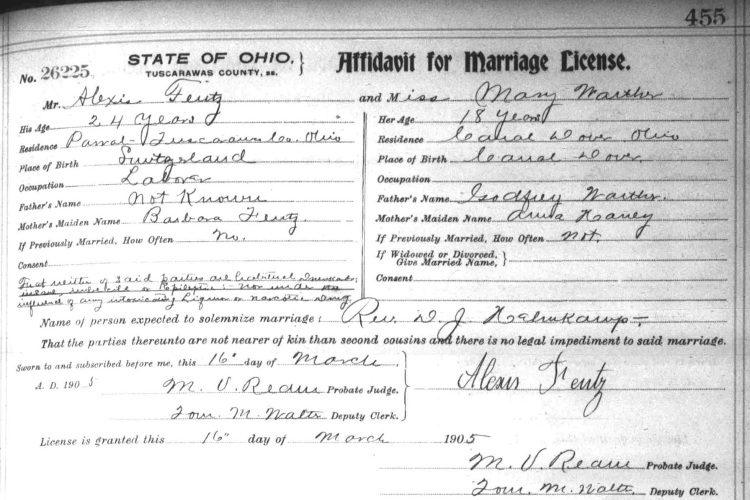 455
No. 26225 STATE OF OHIO, } Affidavit for Marriage License.
TUSCARAWAS COUNTY, ss.
Mr. Alexis Fentz and Miss Mary Warther
His Age 24 Years Her Age 18 Years
Residence Parral Tuscarawas Co. Ohio Residence Canal Dover Ohio
Place of Birth Switzerland Place of Birth Canal Dover
Occupation Laborer Occupation
Father's Name Not Known Father's Name Godfrey Warther
Mother's Maiden Name Barbara Fentz Mother's Maiden Name Anna
If Previously Married, How Often No. If Previously Married, How Often Not.
If Widowed or Divorced, }
Give Married Name,
Consent Consent
That neither of said parties are habitual Drunkards,
imbecile or Epileptic : Nor under the
influence of any intoxicating Liquor or narcotic Drug
Name of person expected to solemnize marriage: Rev. D. J.
That the parties thereunto are not nearer of kin than second cousins and there is no legal impediment to said marriage.
Sworn to and subscribed before me, this 16" day of March
A. D. 1905 Alexis Fentz
M. V. Ream Probate Judge.
Tom. M. Walte Deputy Clerk.
License is granted this 16" day of March 1905
M. V. Ream Probate Judge.
Tom. M. Walte. Deputy Clerk.